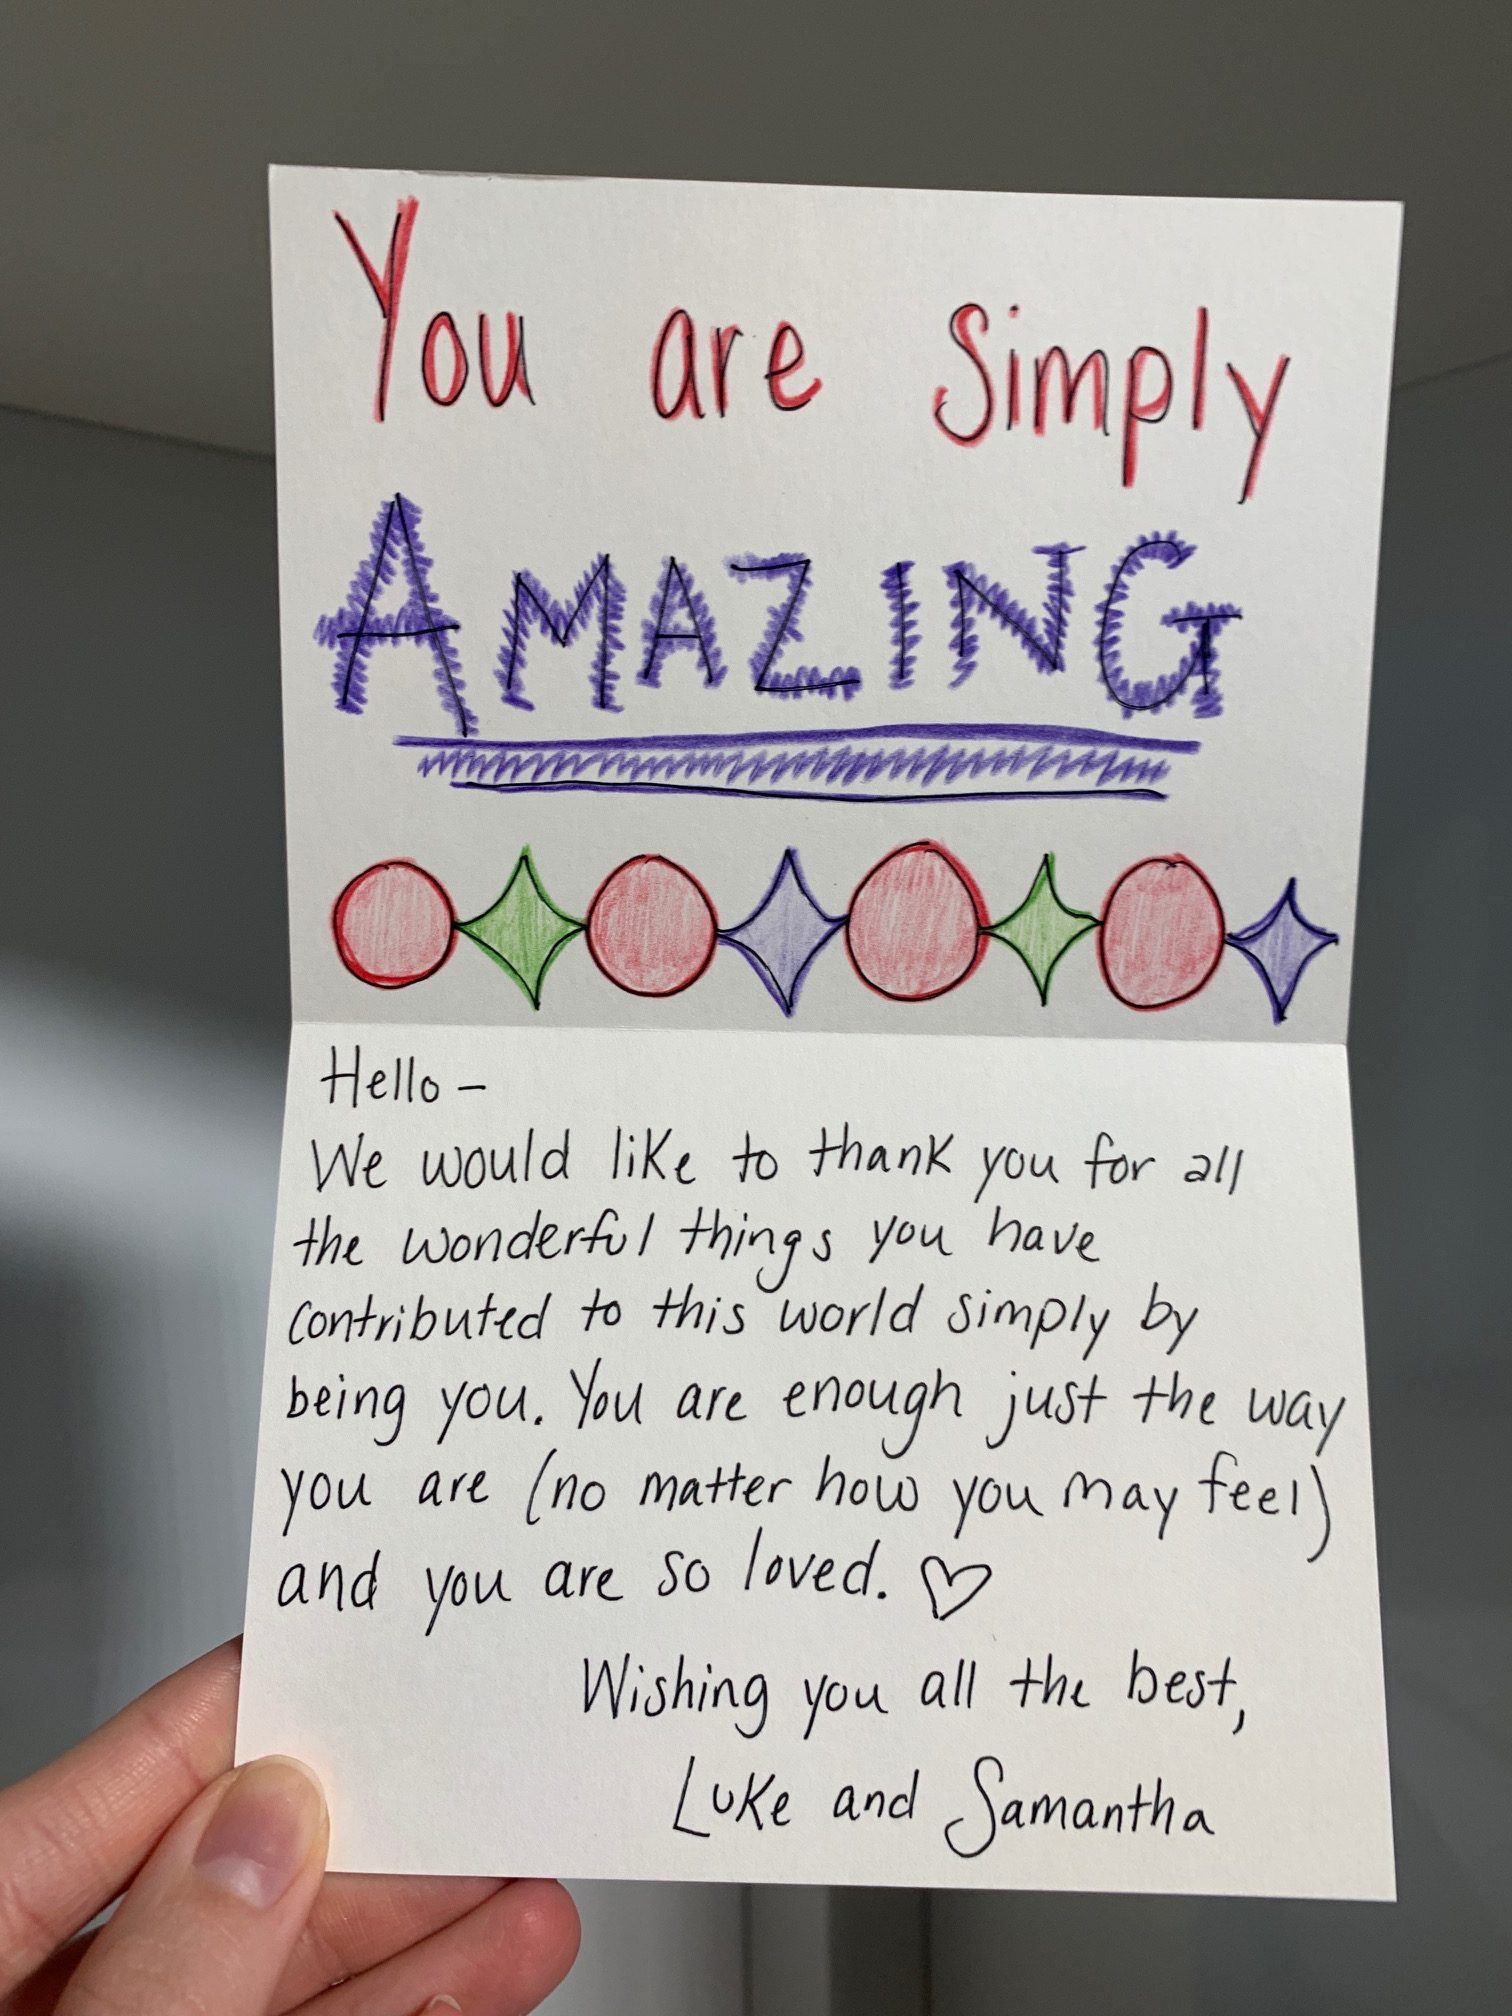 You are simply
AMAZING
Hello -
We would like to thank you for all
the wonderful things you have
contributed to this world simply by
being you. You are enough just the way
you are (no matter how you may feel)
and you are so loved. ♡
Wishing you all the best,
Luke and Samantha